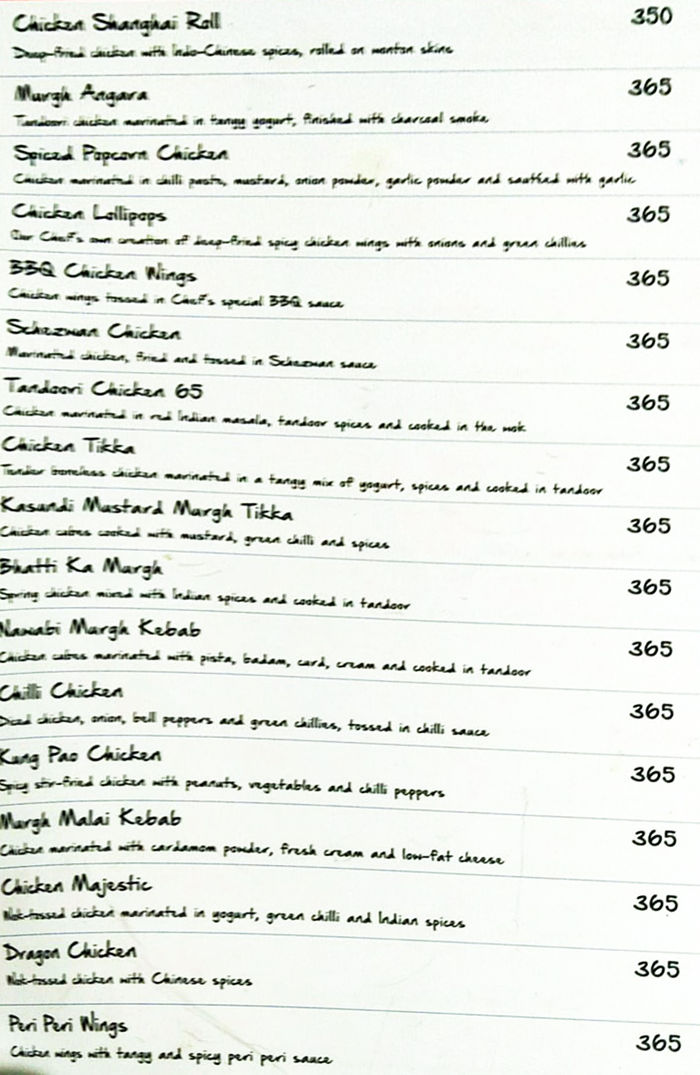 Chicken Shanghai Roll 350
Deep-fried chicken with Indo-Chinese spices, rolled on wonton skins
Murgh Angara 365
Tandoori chicken marinated in tangy yogurt, finished with charcoal smoke
Spiced Popcorn Chicken 365
Chicken marinated in chilli paste, mustard, onion powder, garlic powder and sautéed with garlic
Chicken Lollipops 365
Our Chef's own creation of deep-fried spicy chicken wings with onions and green chillies
BBQ Chicken Wings 365
Chicken wings tossed in Chef's special BBQ sauce
Schezwan Chicken 365
Marinated chicken, fried and tossed in Schezwan sauce
Tandoori Chicken 65 365
Chicken marinated in red Indian masala, tandoor spices and cooked in the wok
Chicken Tikka 365
Tender boneless chicken marinated in a tangy mix of yogurt, spices and cooked in tandoor
Kasundi Mustard Murgh Tikka 365
Chicken cubes cooked with mustard, green chilli and spices
Bhatti Ka Murgh 365
Spring chicken mixed with Indian spices and cooked in tandoor
Nawabi Murgh Kebab 365
Chicken cubes marinated with pista, badam, curd, cream and cooked in tandoor
Chilli Chicken 365
Diced chicken, onion, bell peppers and green chillies, tossed in chilli sauce
Kung Pao Chicken 365
Spicy stir-fried chicken with peanuts, vegetables and chilli peppers
Murgh Malai Kebab 365
Chicken marinated with cardamom powder, fresh cream and low-fat cheese
Chicken Majestic 365
Wok-tossed chicken marinated in yogurt, green chilli and Indian spices
Dragon Chicken 365
Wok-tossed chicken with Chinese spices
Peri Peri Wings 365
Chicken wings with tangy and spicy peri peri sauce